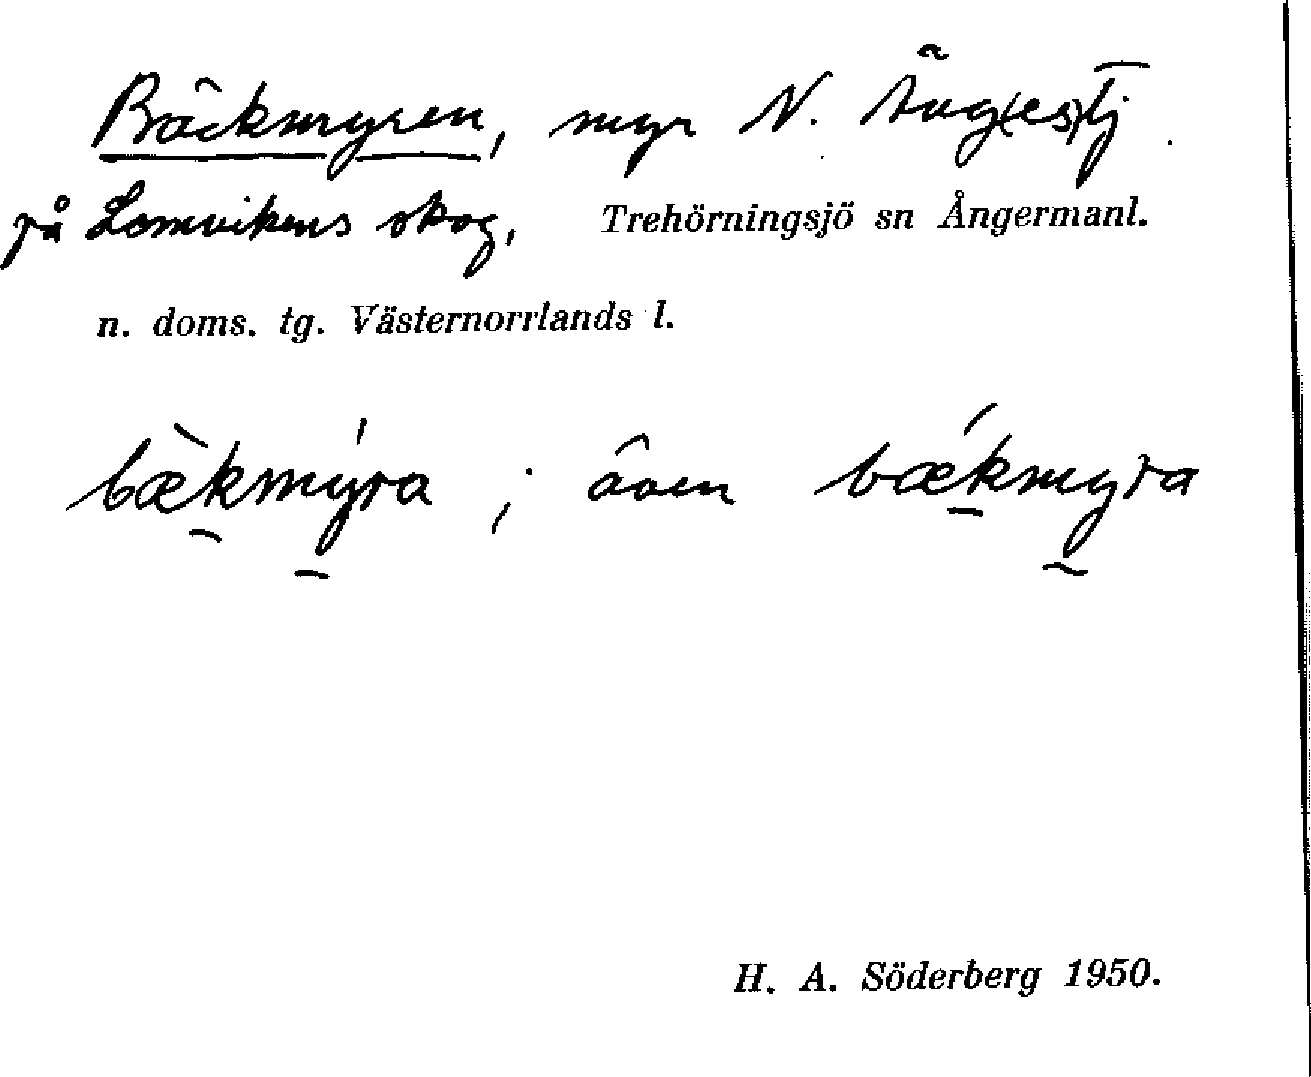 Bäckmyren, myr N.
på Lomvikens skog, Trehörningsjö sn Ångermanl.
n. doms. tg. Västernorrlands l.
bæ̀kmy̍ra ; även bǽkmyra
H. A. Söderberg 1950.